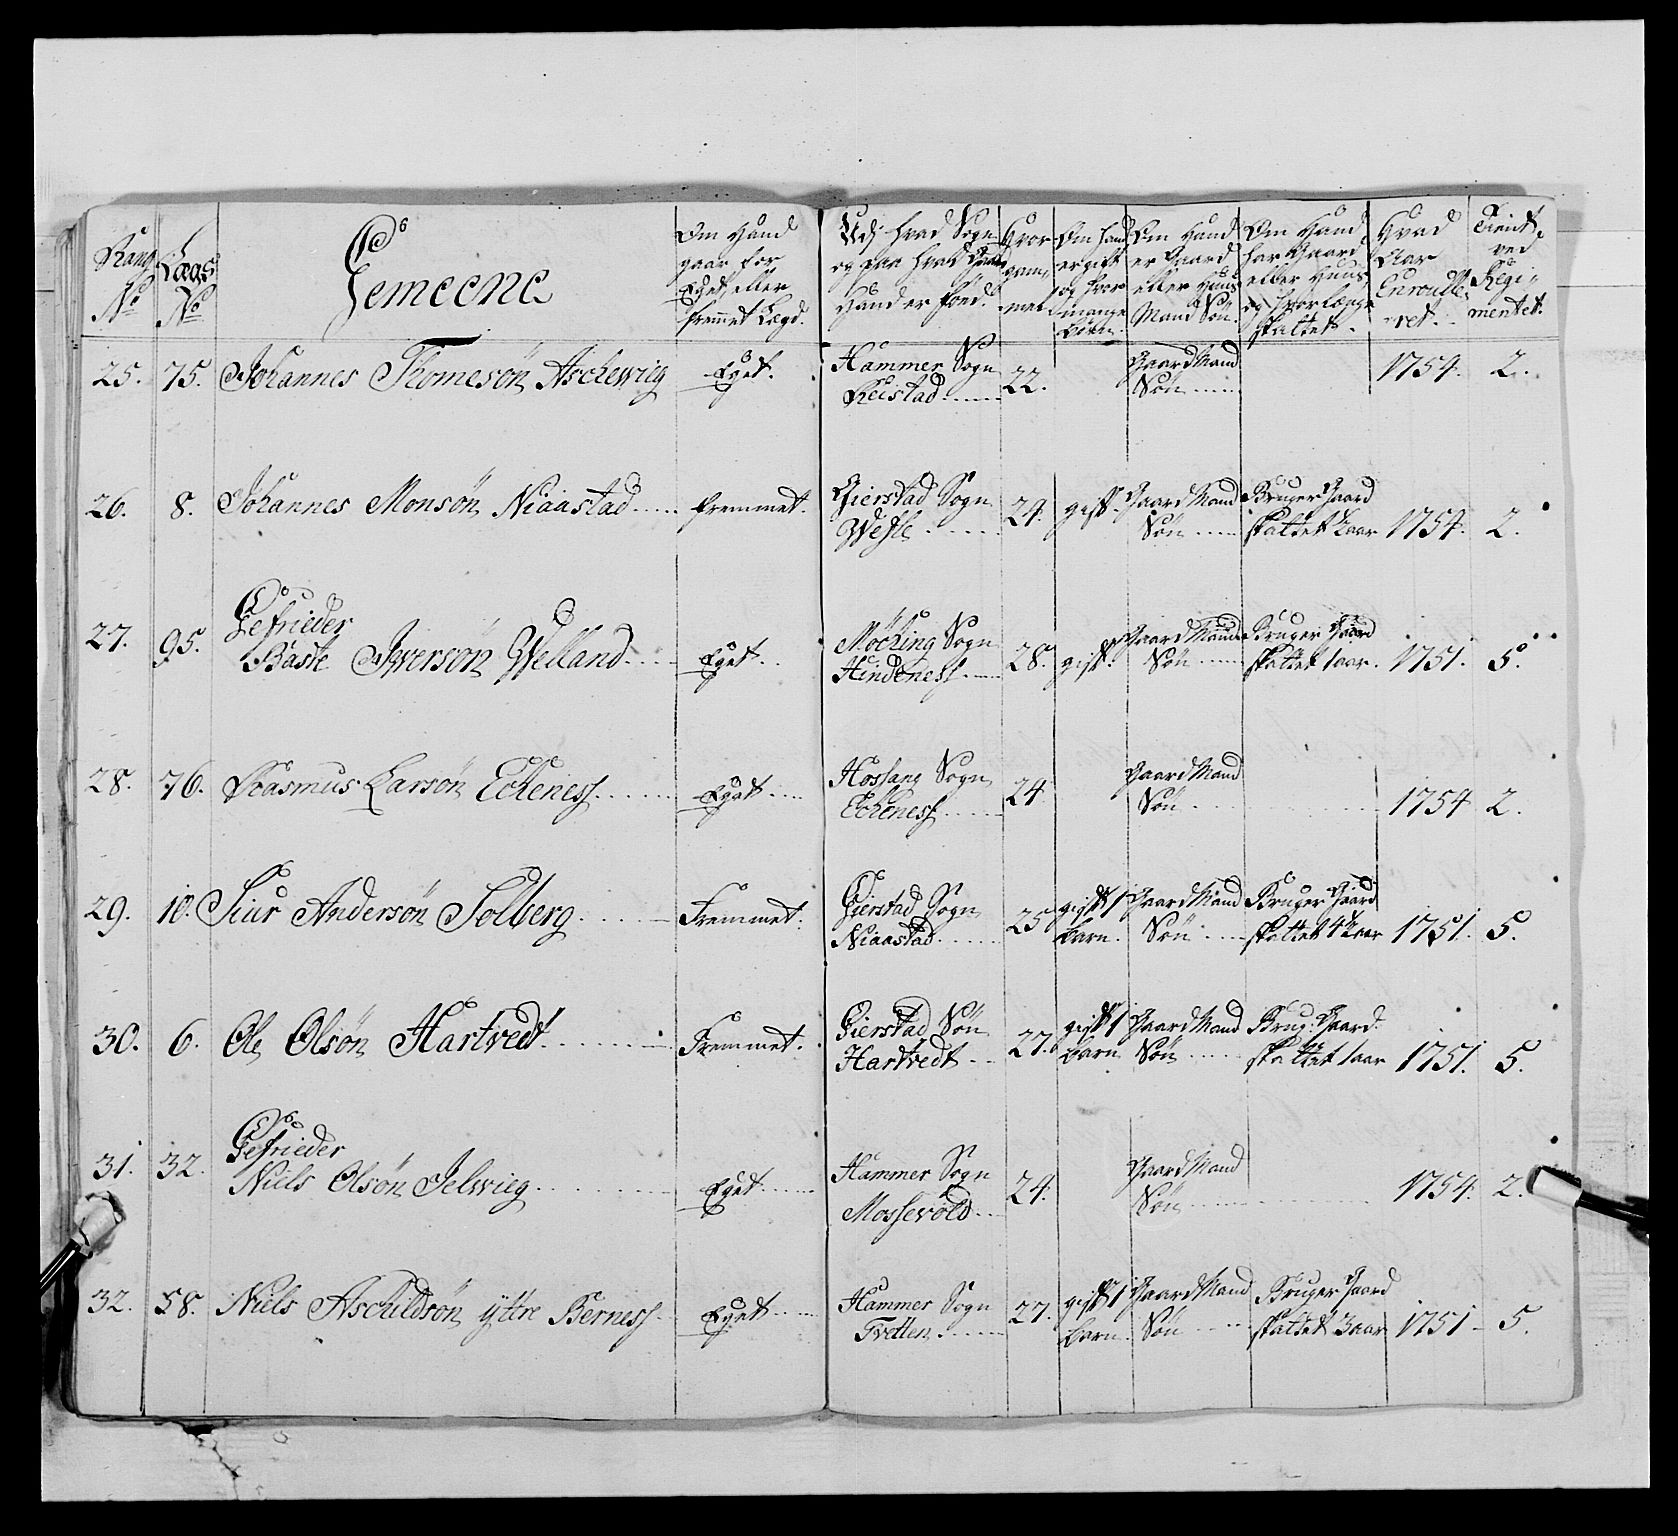 Rang No
Lægs No
Gemeene
Om Hand gaar for Eget eller fremmet Lægd.
Udj hvad Sogn og paa hvad Gaard Hand er fød.
Hvor gam„ mel
Om hand er gift og hvor mange børn.
Om Hand er Gaard eller Huus Mand Søn.
Om Hand har Gaard eller Huus og hvor længe skattet.
Hvad Aar Enroulle„ ret.
Tient ved Regi„ mentet.
25. 75. Johannes Thomesøn Aschewig Eget. Hammer Sogn Reistad 22. Gaard Mand Søn 1754. 2.
26. 8. Johannes Monsøn Niaastad fremmet. Gierstad Sogn Wefle 24. gift. Gaard Mand Søn Bruger Gaard skattet 2 aar 1754. 2.
27. 95. Gefrieder
Baste Iwersøn Welland Eget. Möching Sogn Hindeness 28. gift. Gaard Mand Søn Bruger Gaard skattet 1 aar. 1751. 5.
28. 76. Rasmus Larsøn Echeness Eget Hossang Sogn Echeness 24 Gaard Mand Søn 1754 2.
29. 10. Siur Andersøn Solberg Fremmet. Gierstad Sogn Niaastad 25 gift 1 barn. Gaard Mand Søn Bruger Gaard skattet 4 aar 1751. 5.
30. 6. Ole Olsøn Hartvedt Fremmet. Gierstad Søn Hartvedt 27. gift 1 barn Gaard Mand Søn Brug: Gaard skattet 1 aar 1751. 5.
31. 32. Gefrieder
Niels Olsøn Jelwieg Eget Hammer Sogn Mossevold 24. Gaard Mand Søn 1754. 2.
32. 58. Niels Aschildsøn ÿttre Berness Eget Hammer Sogn Tvetten 27. gift 1 barn. Gaard Mand Søn Bruger Gaard skattet 3 aar 1751 5.